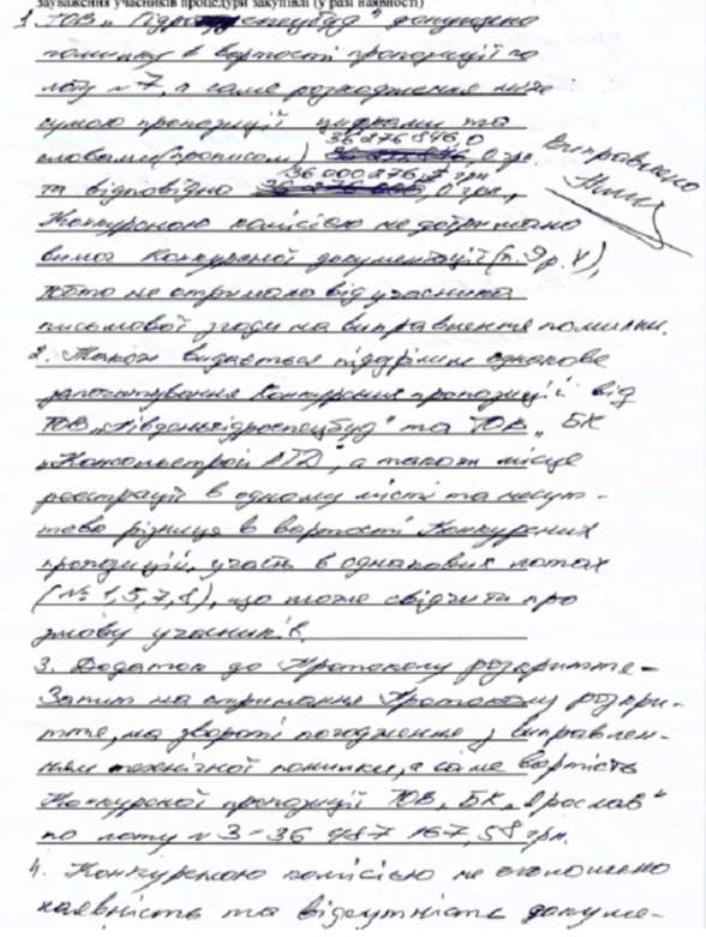 зауваження учасників процедури закупівлі (у разі наявності)
1. ТОВ „Гідроспецбуд" допущено
помилку в вартості пропозиції по
лоту № 7, а саме розходження між
сумою пропозиції цифрами та
словами (прописом) 36 276 846,0 грн.
та відповідно 36 000 276,7 грн,
Виправлено
Конкурсною комісією не дотримано
вимог Конкурсної документації (п. 9 р. V),
тобто не отримано від учасника
письмової згоди на виправлення помилки.
2. Також видається підозрілим однакове
запечатування Конкурсних пропозиції від
ТОВ „Південьгідроспецбуд" та ТОВ „БК
„Комсомолстрой ЛТД", а також місце
реєстрації в одному місті та несут-
тєва різниця в вартості Конкурсних
пропозицій, участь в однакових лотах
(№ 1,5,7,8), що може свідчити про
змову учасників.
3. Додаток до Протоколу розкриття -
Запит на отримання Протоколу розкри-
ття, на звороті погодження з виправлен-
ням технічної помилки, а саме вартість
Конкурсної пропозиції ТОВ „БК „Ярослав"
по лоту № 3 - 36 487 167,58 грн.
4. Конкурсною комісією не оголошено
наявність та відсутність докуме-